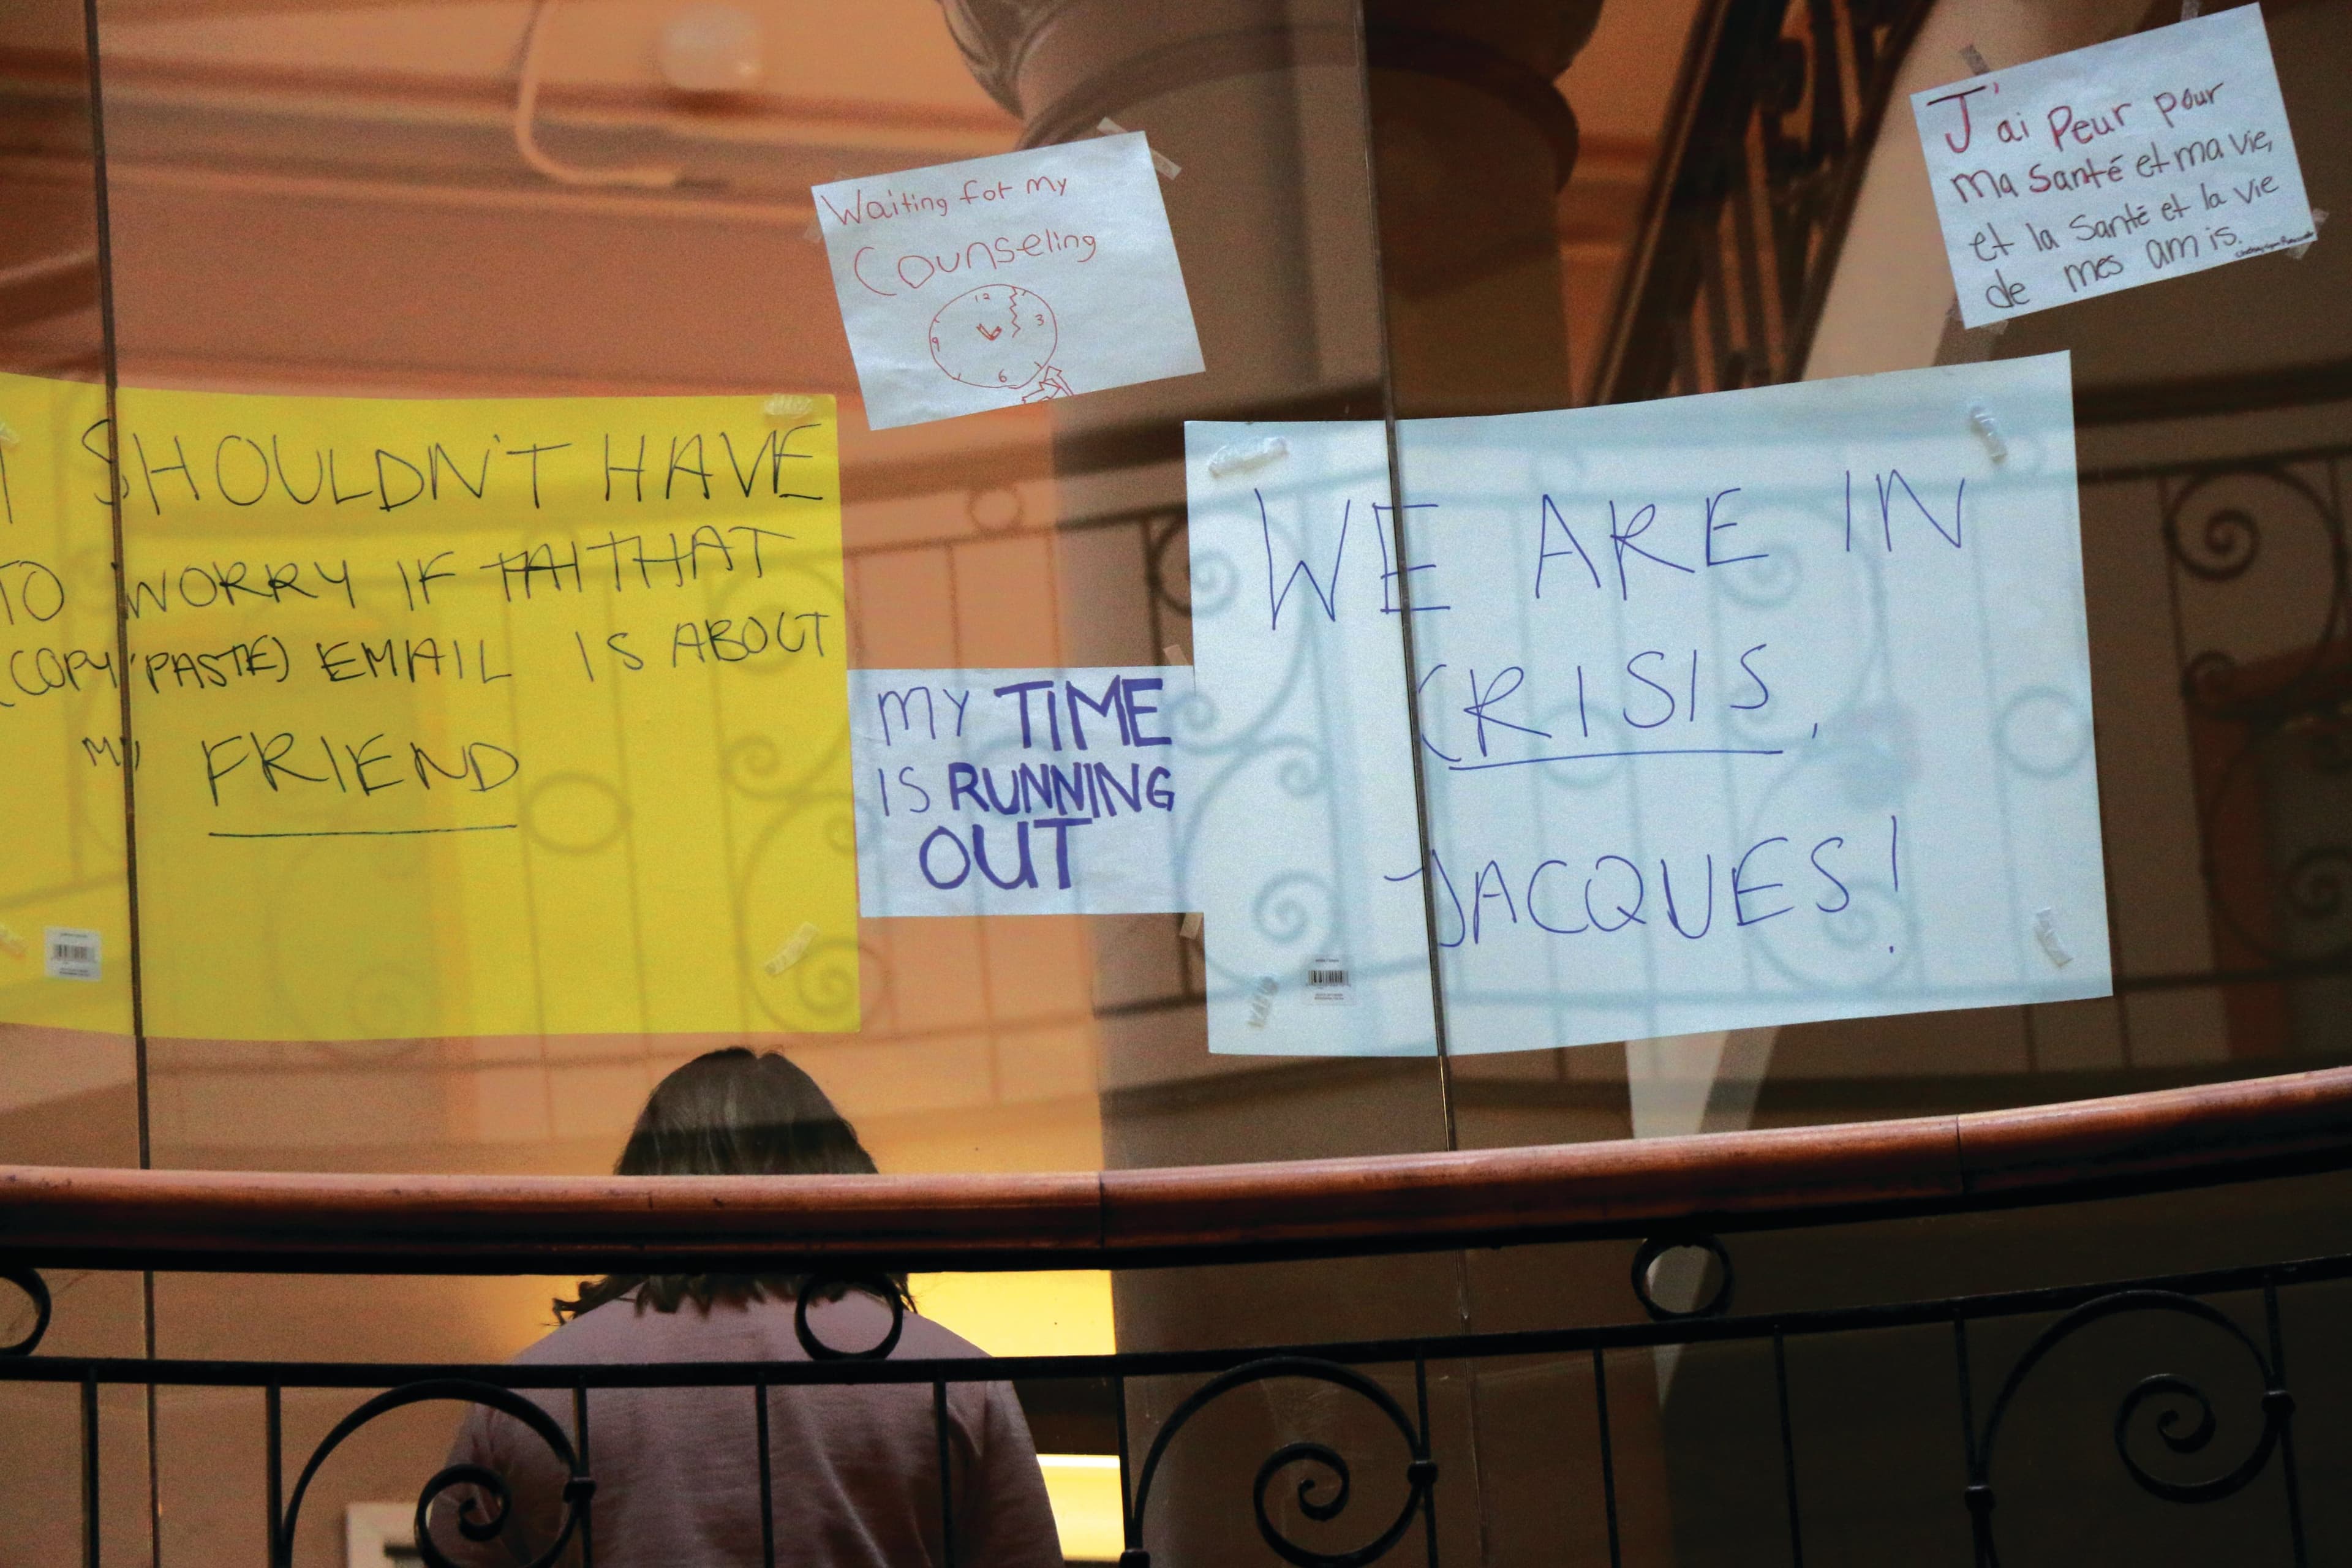 I SHOULDN'T HAVE
TO WORRY IF THAT
(COPY/PASTE) EMAIL IS ABOUT
MY FRIEND
Waiting for my
Counseling
12
3
9
6
MY TIME
IS RUNNING
OUT
WE ARE IN
CRISIS,
JACQUES!
J'ai Peur pour
ma Santé et ma vie,
et la Santé et la vie
de mes amis.